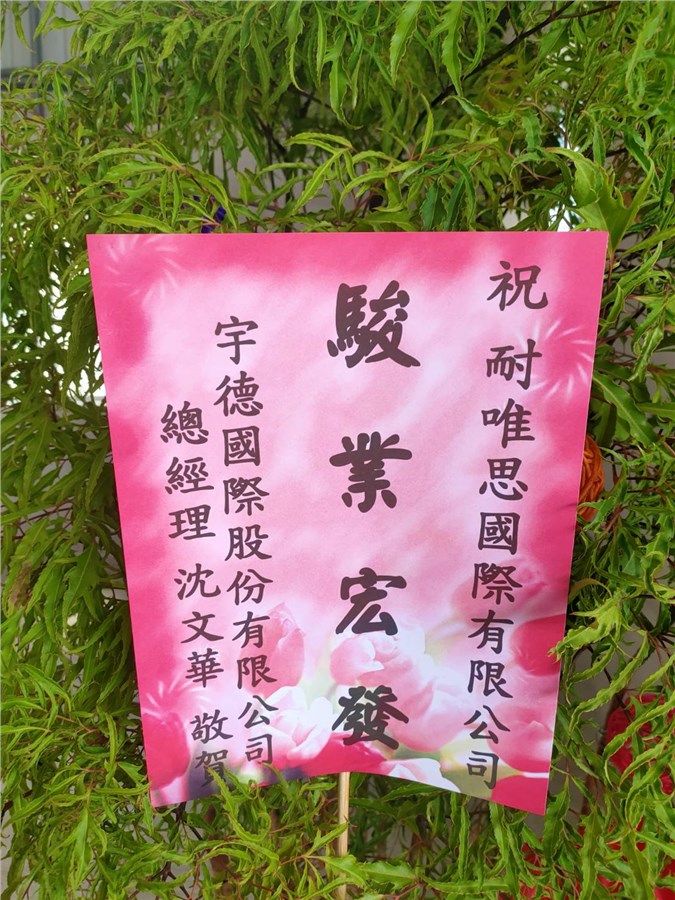 祝 耐唯思國際有限公司
駿業宏發
宇德國際股份有限公司
總經理 沈文華 敬賀